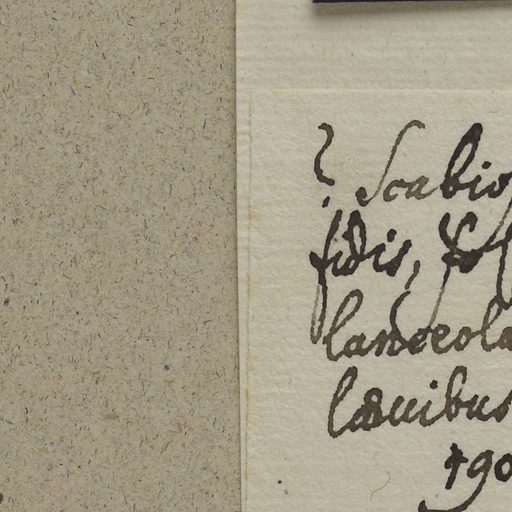 ? Scabio
fidis, fo
lanceola
lævibus
190